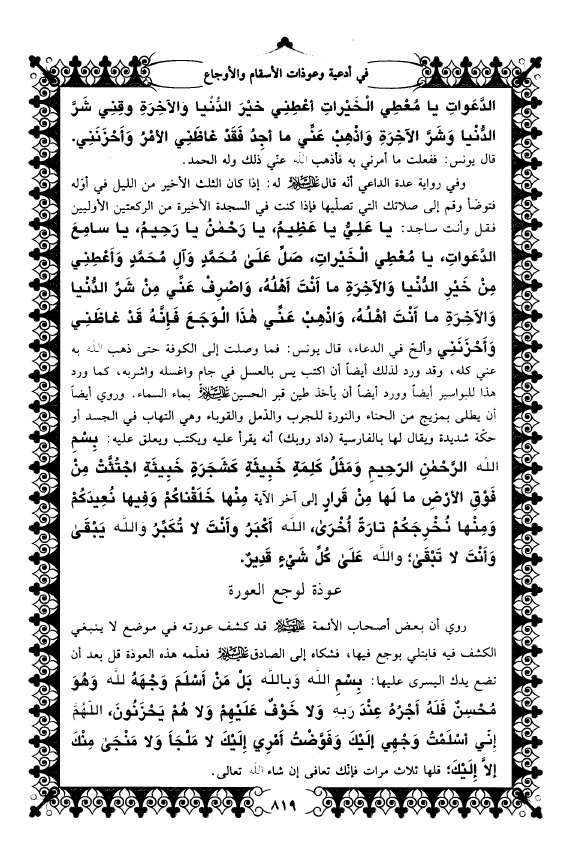 في أدعية وعوذات الأسقام والأوجاع
الدَّعَواتِ يا مُعْطِي الْخَيْراتِ أعْطِني خَيْرَ الدُّنْيا وَالآخِرَةِ وقِني شَرَّ
الدُّنْيا وَشَرَّ الآخِرَةِ وَاذْهِبْ عَنِّي ما أجِدُ فَقَدْ غاظَنِي الأمْرُ وَأحْزَنَنِي.
قال يونس: ففعلت ما أمرني به فأذهب الله عنّي ذلك وله الحمد.
وفي رواية عدة الداعي أنّه قال عليه السلام له: إذا كان الثلث الأخير من الليل في أوّله
فتوضّأ وقم إلى صلاتك التي تصلّيها فإذا كنت في السجدة الأخيرة من الركعتين الأوليين
فقل وأنت ساجد: يا عَلِيُّ يا عَظِيمُ، يا رَحْمٰنُ يا رَحِيمُ، يا سامِعَ
الدَّعواتِ، يا مُعْطِي الْخَيْراتِ، صَلِّ عَلىٰ مُحَمَّدٍ وَآلِ مُحَمَّدٍ وَأعْطِنِي
مِنْ خَيْرِ الدُّنْيا وَالآخِرَةِ ما أنْتَ أهْلُهُ، وَاصْرِفْ عَنِّي مِنْ شَرِّ الدُّنْيا
وَالآخِرَةِ ما أنْتَ أهْلُهُ، وَاذْهِبْ عَنِّي هٰذا الْوَجَعَ فَإِنَّهُ قَدْ غاظَنِي
وَأحْزَنَنِي وألخ في الدعاء، قال يونس: فما وصلت إلى الكوفة حتى ذهب الله به
عني كله، وقد ورد لذلك أيضاً أن اكتب يس بالعسل في جام واغسله واشربه، كما ورد
هذا للبواسير أيضاً وورد أيضاً أن يأخذ طين قبر الحسين عليه السلام بماء السماء. وروي أيضاً
أن يطلى بمزيج من الحناء والنورة للجرب والدّمل والقوباء وهي التهاب في الجسد أو
حكّة شديدة ويقال لها بالفارسية (داد روبك) أنه يقرأ عليه ويكتب ويعلق عليه: بِسْمِ
الله الرَّحْمٰنِ الرَحِيمِ وَمَثَلُ كَلِمَةٍ خَبِيثَةٍ كَشَجَرَةٍ خَبِيثَةٍ اجْتُثَّتْ مِنْ
فَوْقِ الأرْضِ ما لَها مِنْ قَرارٍ إلى آخر الآية مِنْها خَلَقْناكُمْ وَفِيها نُعِيدُكُمْ
وَمِنْها نُخْرِجَكُمْ تارَةً أُخْرىٰ، الله أكْبَرُ وأنْتَ لا تُكَبِّرُ وَالله يَبْقَىٰ
وَأنْتَ لا تَبْقَىٰ؛ والله عَلَىٰ كُلِّ شَيْءٍ قَدِيرٌ.
عوذة لوجع العورة
روي أن بعض أصحاب الأئمة عليهم السلام قد كشف عورته في موضع لا ينبغي
الكشف فيه فابتلي بوجع فيها، فشكاه إلى الصادق عليه السلام فعلّمه هذه العوذة قل بعد أن
تضع يدك اليسرى عليها: بِسْمِ الله وَبالله بَلْ مَنْ أسْلَمَ وَجْهَهُ لله وَهُوَ
مُحْسِنٌ فَلَهُ أجْرُهُ عِنْدَ رَبِهِ وَلا خَوْفٌ عَلَيْهِمْ وَلا هُمْ يَحْزَنُونَ، اللهُمَّ
إنّي أسْلَمْتُ وَجْهِي إلَيْكَ وَفَوَّضْتُ أمْرِي إلَيْكَ لا مَلْجَأَ وَلا مَنْجَىٰ مِنْكَ
إلاَّ إلَيْكَ؛ قلها ثلاث مرات فإنّك تعافى إن شاء الله تعالى.
٨١٩